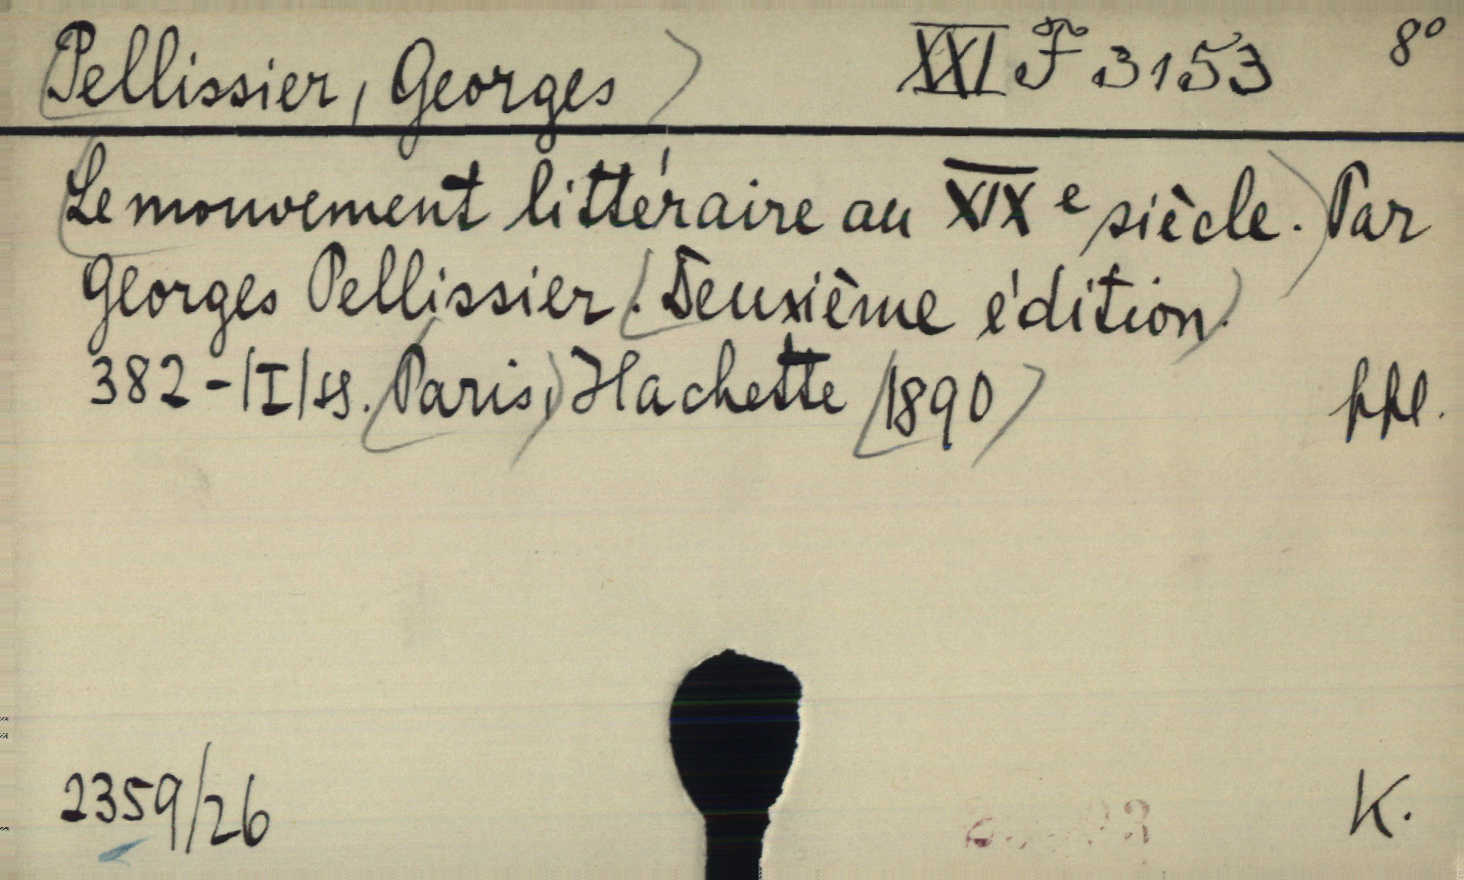 Pellissier, Georges XXI F 3153 8°
Le mouvement littéraire au XIXe siècle. Par
Georges Pellissier. Deuxième édition.
382 - |I| ss. Paris, Hachette 1890 ppl.
2359/26 K.